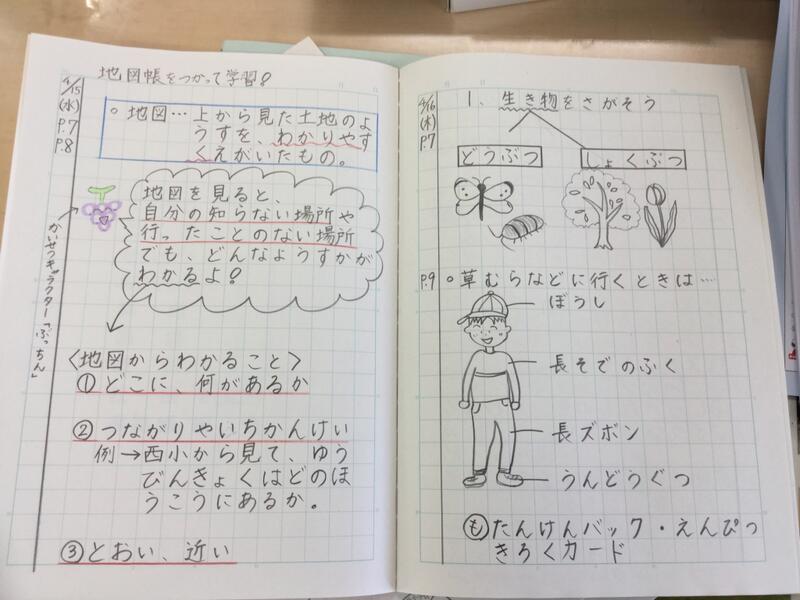 地図帳をつかって学習!
4/15
(水)
P.7
P.8
。地図…上から見た土地のよ
うすを、わかりやす
くえがいたもの。
地図を見ると、
自分の知らない場所や
行ったことのない場所
でも、どんなようすかが
わかるよ!
かいせつキャラクター「ぶっちん」
<地図からわかること>
①どこに、何があるか
②つながりやいちかんけい
例→西小から見て、ゆう
びんきょくはどのほ
うこうにあるか。
③とおい、近い
4/16
(木)
P.7
1、生き物をさがそう
どうぶつ
しょくぶつ
P.9
。草むらなどに行くときは…
ぼうし
長そでのふく
長ズボン
うんどうぐつ
もたんけんバック・えんぴつ
きろくカード